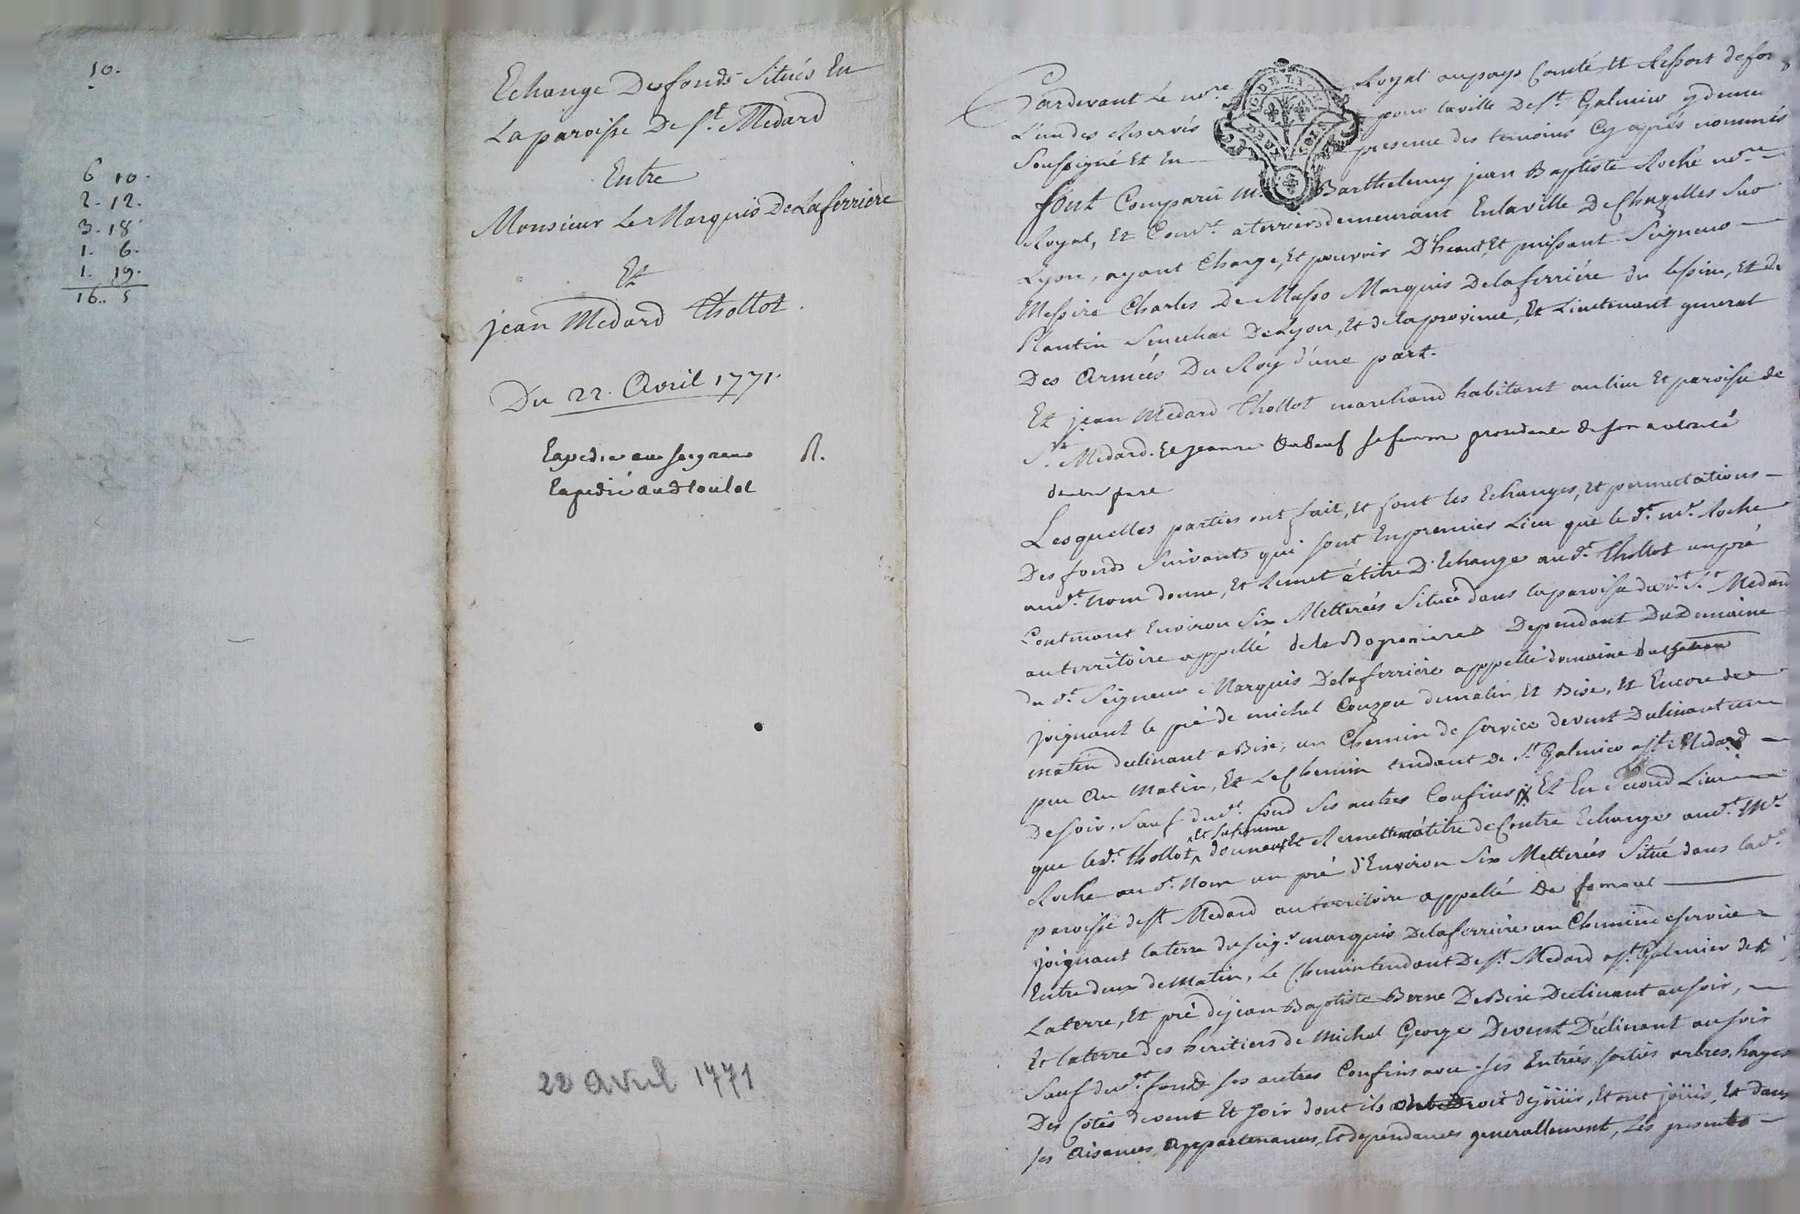 10.
6 10.
2. 12.
3. 18
1. 6.
1. 19.
16.. 5
Echange De fonds Situés En
La paroisse De St. Medard
Entre
Monsieur Le Marquis De Laferriere
Et
jean Medard Thollot.
Du 22. Avril 1771.
Expedié au seigneur R.
Expedié aud. thoulot
22 avril 1771
Pardevant Le nore. Royal au pays Comté et Ressort de forez
L'un des Reservés pour la ville De St. Galmier y demeurant
Soussigné Et En presence des temoins Cy après nommés
fut Comparû Me. Barthelemy jean Baptiste Roche nore.
Royal, Et Comre. a terriers demeurant En la ville De Chazelles Sur
Lyon, ayant Charge, Et pouvoir D'haut, Et puissant Seigneur
Messire Charles De Masso Marquis De laferriére du lessine, Et de
Plantin Senechal De Lyon, Et de la province, Et Lieutenant general
Des Armées Du Roy d'une part.
Et jean Medard Thollot marchand habitant au lieu Et paroisse de
St. Medard. Et jeanne Duboeuf sa femme procedante de son autorité
d'autre part
Lesquelles parties ont fait, et font les Echanges, Et permutations
Des fonds Suivants qui sont En premier Lieu que le dt. me. Roche
audt. nom donne, Et Remet à titre D'Echange audt. Thollot un pré
Contenant Environ Six Metterées Situé dans la paroisse dudt. St. Medard
au territoire appellé de la Dependant Du Domaine
du dt. Seigneur Marquis De laferriere appellé domaine
joignant le pré de michel de matin, Et Bise, Et Encore de
matin declinant a Bise, un Chemin de service de vent Declinant un
peu Au Matin, Et Le Chemin tendant de St. Galmier a St. Medard
de soir, Sauf dudt. fond Ses autres Confins, Et En Second Lieu
que ledt. thollot, et sa femme donnent Et Remettent à titre de Contre Echange audt. Me.
Roche au dt. Nom un pré d'Environ Six Metterées Situé dans lade.
paroisse de St. Medard au territoire appellé De
joignant la terre du seigr. marquis De laferriere un Chemin de service
Entre deux de Matin, Le Chemin tendant De St. Medard a St. Galmier de
La terre, Et pré de jean Baptiste Berne De Bise Declinant au soir,
Et la terre des heritiers de Michel George De vent Déclinant au soir
Sauf dudt. fond ses autres Confins avec ses Entrées, sorties arbres, hayes
Des Cotés de vent Et soir dont ils ont Droit de joüir, Et ont joüis, Et dans
ses Aisances Appartenances, Et dependances generallement, Les presents